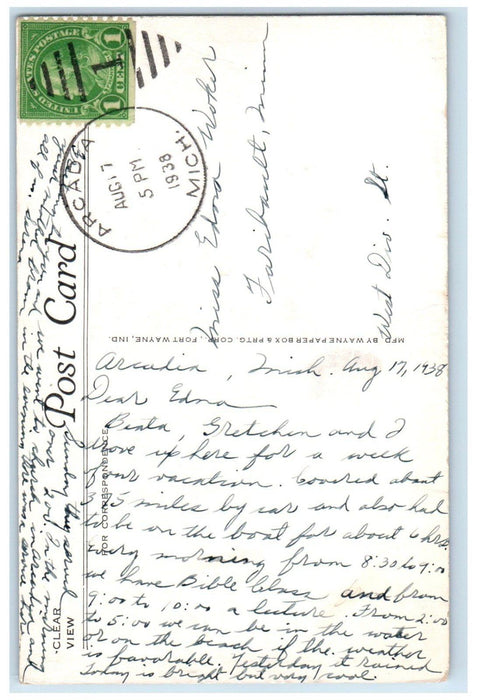 UNITED STATES POSTAGE
1 CENT 1
ARCADIA
AUG 17
5 PM
1938
MICH.
Miss Edna Woker
Faribault, Minn
West Div. St.
Post Card
MFD BY WAYNE PAPER BOX & PRTG. CORP., FORT WAYNE, IND.
FOR CORRESPONDENCE
"CLEAR
VIEW"
Arcadia, Mich. Aug 17, 1938
Dear Edna
Beata, Gretchen and I
drove up here for a week
of our vacation. Covered about
miles by car and also had
to be on the boat for about 6 hrs.
Every morning from 8:30 to 9:00
we have Bible Class and from
9:00 to 10:00 a lecture. From 2:00
to 5:00 we can be in the water
or on the beach if the weather
is favorable. Yesterday it rained
today is bright but very cool.
Sunday this
over you. In the morning
we went to church in Arcadia and
in the evening there were